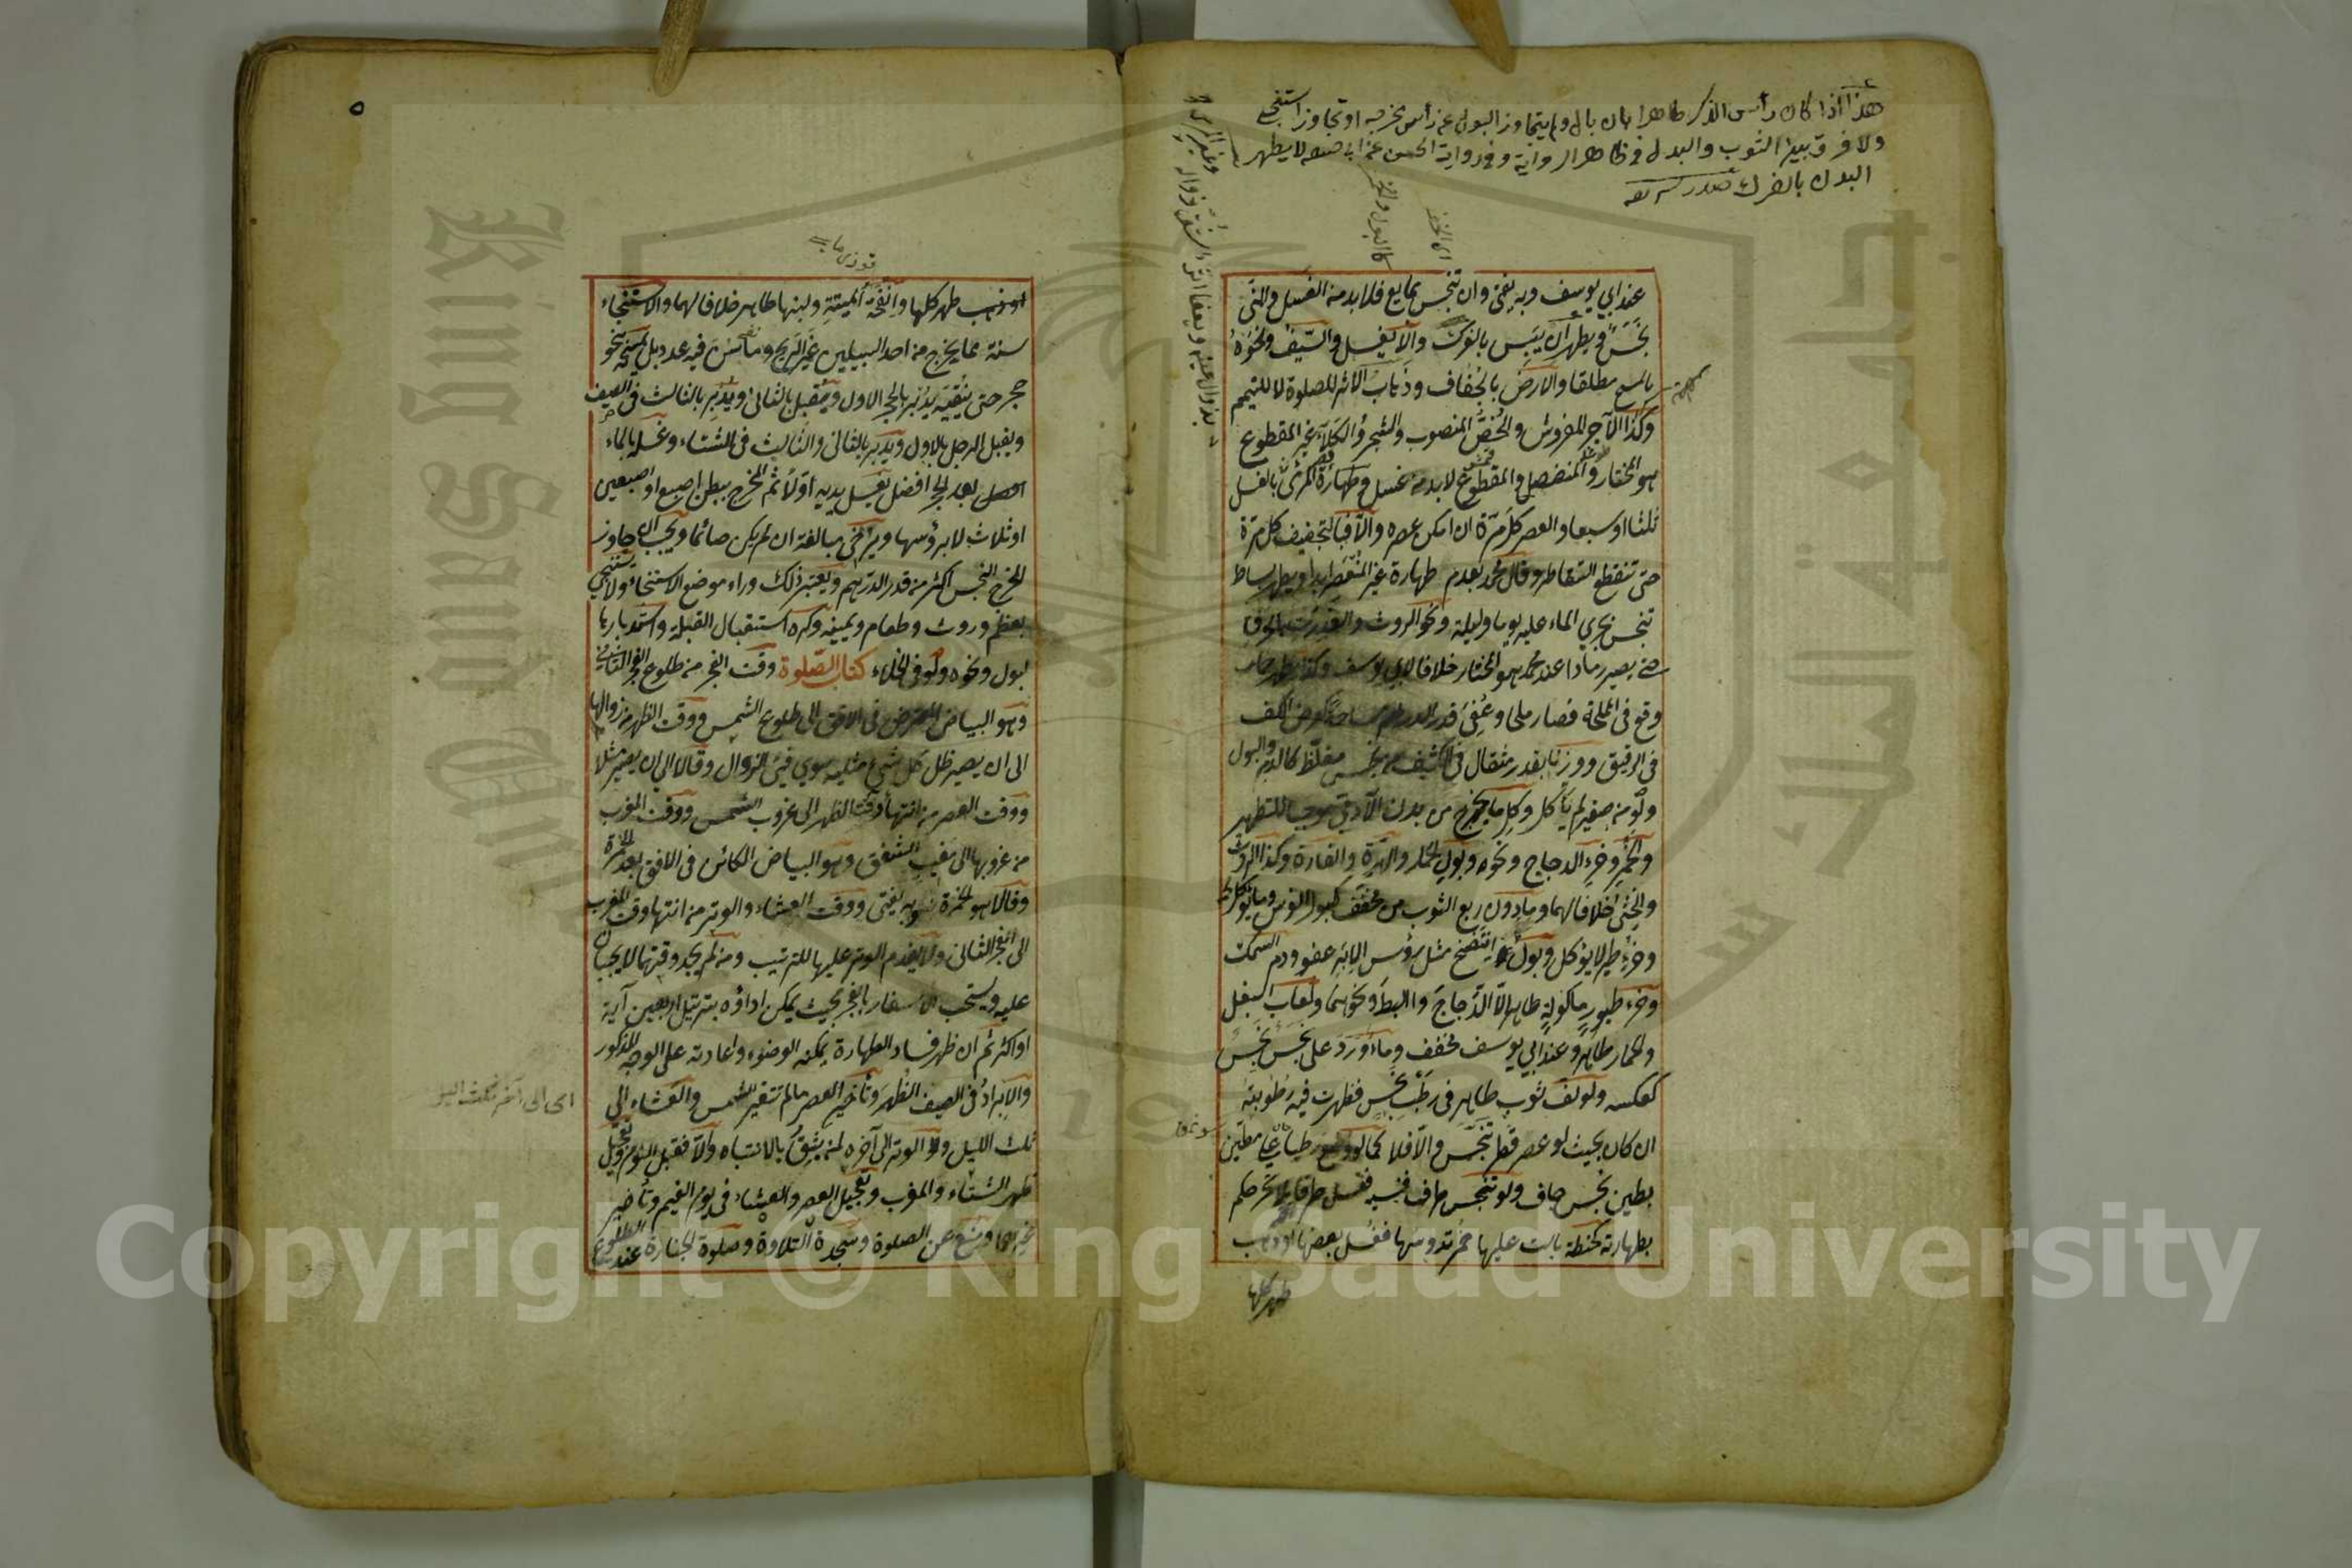 هذا اذا كان رأس الذكر طاهرا بان بال ولم يتجاوز البول عن رأس مخرجه او تجاوز استنجى
ولا فرق بين الثوب والبدن في ظاهر الرواية وفي رواية الحسن عن ابي حنيفة لا يطهر
البدن بالفرك
عند ابي يوسف وبه يفتى وان تنجس بمايع فلا بد من الغسل والمني
نجس ويطهر ان يبس بالفرك والا يغسل والسيف ونحوه
بالمسح مطلقا والارض بالجفاف وذهاب الاثر للصلوة لا للتيمم
وكذا الآجر المفروش والخص المنصوب والشجر والكلاء غير المقطوع
هو المختار والمنفصل والمقطوع لا بد من غسله وطهارة المرئي بالغسل
ثلثا او سبعا والعصر كل مرة ان امكن عصره والا فبالتجفيف كل مرة
حتى تنقطع التقاطر وقال محمد بعدم طهارة غير المنعصر ابدا ويطهر بساط
تنجس بجري الماء عليه يوما وليلة ونحو الروث والعذرة بالحرق
حتى يصير رمادا عند محمد هو المختار خلافا لابي يوسف وكذا يطهر حمار
وقع في المملحة فصار ملحا وعفي قدر الدرهم مساحة كعرض الكف
في الرقيق ووزنا بقدر مثقال في الكثيف من نجس مغلظ كالدم والبول
ولو من صغير لم يأكل وكل ما يخرج من بدن الآدمي موجبا للتطهير
والخمر وخرء الدجاج ونحوه وبول الحمار والهرة والفارة وكذا الروث
والخثي خلافا لهما وما دون ربع الثوب من مخفف كبول الفرس وما يؤكل لحمه
وخرء طير لا يؤكل وبول انتضح مثل رؤس الابر عفو ودم السمك
وخرء طيور ماكولة طاهر الا الدجاج والبط ونحوهما ولعاب البغل
والحمار طاهر وعند ابي يوسف مخفف وماء ورد على نجس نجس
كعكسه ولو لف ثوب طاهر في رطب نجس فظهرت فيه رطوبته
ان كان بحيث لو عصر قطر تنجس والا فلا كما لو وضع رطبا على مطين
بطين نجس جاف ولو تنجس طرف فنسيه فغسل طرفا بلا تحر حكم
بطهارته كحنطة بالت عليها حمر تدوسها فغسل بعضها او ذهب
طهر كلها
٥
او ذهب طهر كلها وانفحة الميتة ولبنها طاهر خلافا لهما والاستنجاء
سنة مما يخرج من احد السبيلين غير الريح وما سن فيه عدد بل يمسحه بنحو
حجر حتى ينقيه يدبر بالحجر الاول ويقبل بالثاني ويدبر بالثالث في الصيف
ويقبل الرجل بالاول ويدبر بالثاني والثالث في الشتاء وغسله بالماء
بعد الحجر افضل يغسل يديه اولا ثم المخرج ببطن اصبع او اصبعين
او ثلاث لا برؤسها ويرخي مبالغة ان لم يكن صائما ويجب ان جاوز
المخرج النجس اكثر من قدر الدرهم ويعتبر ذلك وراء موضع الاستنجاء ولا يستنجي
بعظم وروث وطعام ويمينه وكره استقبال القبلة واستدبارها
لبول ونحوه ولو في الخلاء كتاب الصلوة وقت الفجر من طلوع الفجر الثاني
وهو البياض المعترض في الافق الى طلوع الشمس ووقت الظهر من زوالها
الى ان يصير ظل كل شيء مثليه سوى فيء الزوال وقالا الى ان يصير مثلا
ووقت العصر من انتهاء وقت الظهر الى غروب الشمس ووقت المغرب
من غروبها الى مغيب الشفق وهو البياض الكائن في الافق بعد الحمرة
وقالا هو الحمرة وبه يفتى ووقت العشاء والوتر من انتهاء وقت المغرب
الى الفجر الثاني ولا يقدم الوتر عليها للترتيب ومن لم يجد وقتهما لا يجبان
عليه ويستحب الاسفار بالفجر بحيث يمكن اداؤه بترتيل اربعين آية
او اكثر ثم ان ظهر فساد الطهارة يمكنه الوضوء واعادته على الوجه المذكور
والابراد في الصيف الظهر وتأخير العصر ما لم تتغير الشمس والعشاء الى
ثلث الليل والوتر الى آخره لمن يثق بالانتباه والا فقبل النوم وتعجيل
ظهر الشتاء والمغرب وتعجيل العصر والعشاء في يوم الغيم وتأخير
غيرهما ومنع عن الصلوة وسجدة التلاوة وصلوة الجنازة عند الطلوع